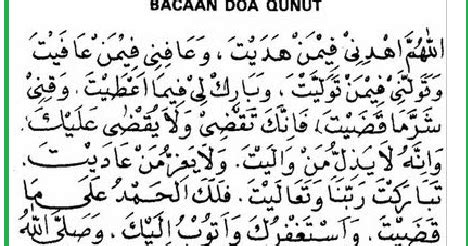 BACAAN DOA QUNUT
اَللّٰهُمَّ اهْدِنِيْ فِيْمَنْ هَدَيْتَ ، وَعَافِنِيْ فِيْمَنْ عَافَيْتَ
وَتَوَلَّنِيْ فِيْمَنْ تَوَلَّيْتَ ، وَبَارِكْ لِيْ فِيْمَا اَعْطَيْتَ . وَقِنِيْ
شَرَّمَا قَضَيْتَ ، فَاِنَّكَ تَقْضِيْ وَلَا يُقْضٰى عَلَيْكَ .
وَاِنَّهُ لَا يَذِلُّ مَنْ وَالَيْتَ . وَلَا يَعِزُّ مَنْ عَادَيْتَ .
تَبَارَكْتَ رَبَّنَا وَتَعَالَيْتَ . فَلَكَ الْحَمْدُ عَلٰى مَا
قَضَيْتَ . وَاَسْتَغْفِرُكَ وَاَتُوْبُ اِلَيْكَ . وَصَلَّى اللّٰهُ